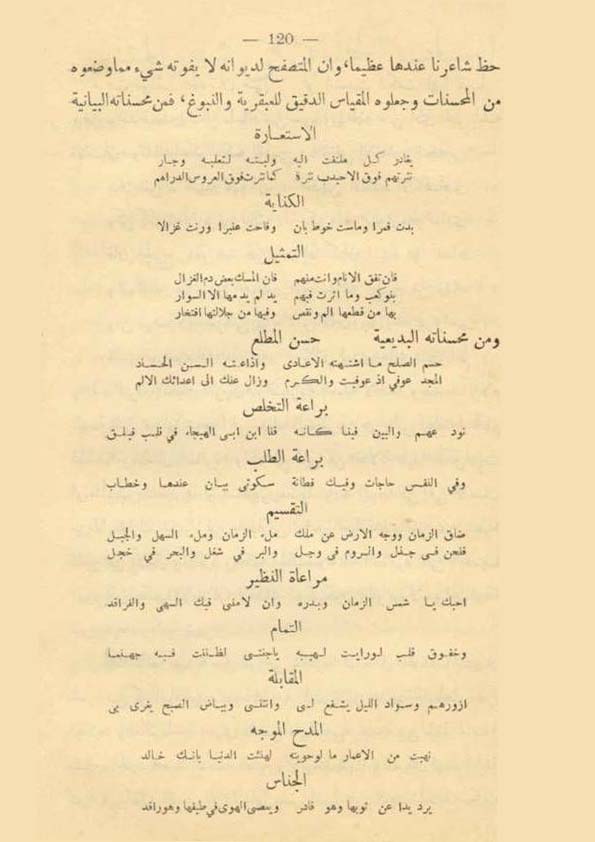 — 120 —
حظ شاعرنا عندها عظيما، وان المتصفح لديوانه لا يفوته شيء مما وضعوه
من المحسنات وجعلوه المقياس الدقيق للعبقرية والنبوغ، فمن محسناته البيانية
الاستعارة
يغادر كل ملتفت اليه ولبته لثعلبه وجار
نثرتهم فوق الاحيدب نثرة كما نثرت فوق العروس الدراهم
الكناية
بدت قمرا وماست خوط بان وفاحت عنبرا ورنت غزالا
التمثيل
فان تفق الانام وانت منهم فان المسك بعض دم الغزال
بنو كعب وما اثرت فيهم يد لم يدمها الا السوار
بها من قطعها الم ونقص وفيها من جلالتها افتخار
ومن محسناته البديعية حسن المطلع
حسم الصلح ما اشتهته الاعادى واذاعته السن الحساد
المجد عوفي اذ عوفيت والكرم وزال عنك الى اعدائك الالم
براعة التخلص
نود عهم والبين فينا كانه قنا ابن ابى الهيجاء في قلب فيلق
براعة الطلب
وفي النفس حاجات وفيك فطانة سكوتى بيان عندها وخطاب
التقسيم
ضاق الزمان ووجه الارض عن ملك ملء الزمان وملء السهل والجبل
فنحن فى جذل والروم في وجل والبر في شغل والبحر في خجل
مراعاة النظير
احبك يا شمس الزمان وبدره وان لامنى فيك السهى والفراقد
التمام
وخفوق قلب لو رايت لهيبه ياجنتى لظننت فيه جهنما
المقابلة
ازورهم وسواد الليل يشفع لى وانثنى وبياض الصبح يغرى بى
المدح الموجه
نهبت من الاعمار ما لو حويته لهنئت الدنيا بانك خالد
الجناس
يرد يدا عن ثوبها وهو قادر ويعصى الهوى في طيفها وهو راقد